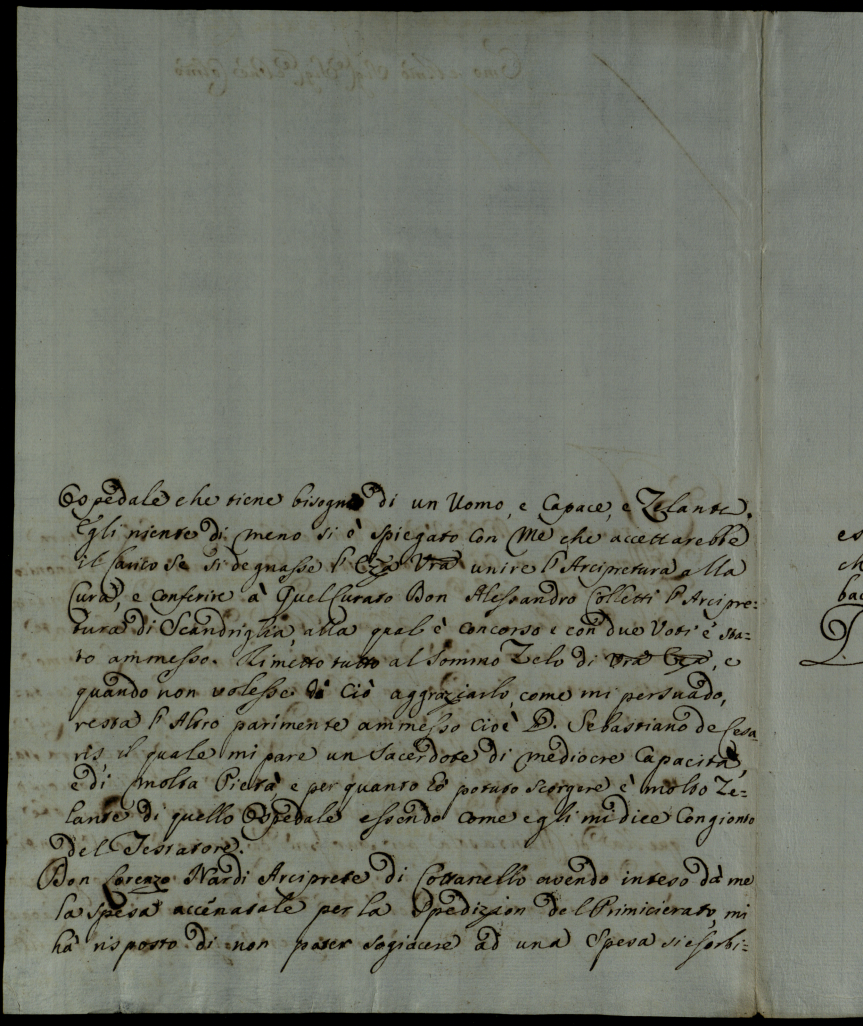 Ospedale che tiene bisogno di un Uomo, e Capace, e Zelante.
Egli niente di meno si è spiegato con Me che accettarebbe
il Carico se si degnasse l' Ecza Vra unire l' Arcipretura alla
Cura, e conferire à Quel Curato Don Alessandro Colletti l' Arcipre=
tura di Scandriglia, alla qual' è concorso e con due Voti è sta=
to ammesso. Rimetto tutto al Sommo Zelo di Vra Ecza, e
quando non volesse di Ciò aggraziarlo, come mi persuado,
resta l' Altro parimente ammesso cioè D. Sebastiano de Cesa
ris, il quale mi pare un Sacerdote di mediocre Capacità,
e di molta Pietà, e per quanto hò potuto scorgere è molto Ze=
lante di quello Ospedale essendo come egli mi dice Congionto
del Testatore.
Don Lorenzo Nardi Arciprete di Cottanello avendo inteso dà me
la spesa accénatale per la Spedizion del Primicierato, mi
hà risposto di non poter sogiacere ad una Spesa si esorbi=
es
ch
bac